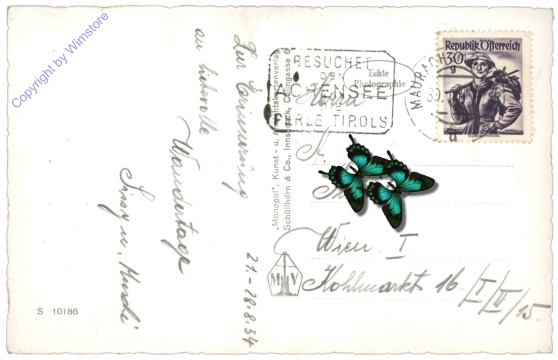 Copyright by Wimstore
Zur Erinnerung
an liebvolle
Wandertage
Sissy u.
21. - 28.8.54
S 10186
"Monopol", Kunst- u. Ansichtskartenverlag
Schöllhorn & Co., Innsbruck,
Echte
Photographie
BESUCHET
DEN
ACHENSEE
PERLE TIROLS
MAURACH
Republik Österreich
30
g
Herrn
Wien I
Kohlmarkt 16 /I/II/15.
M V